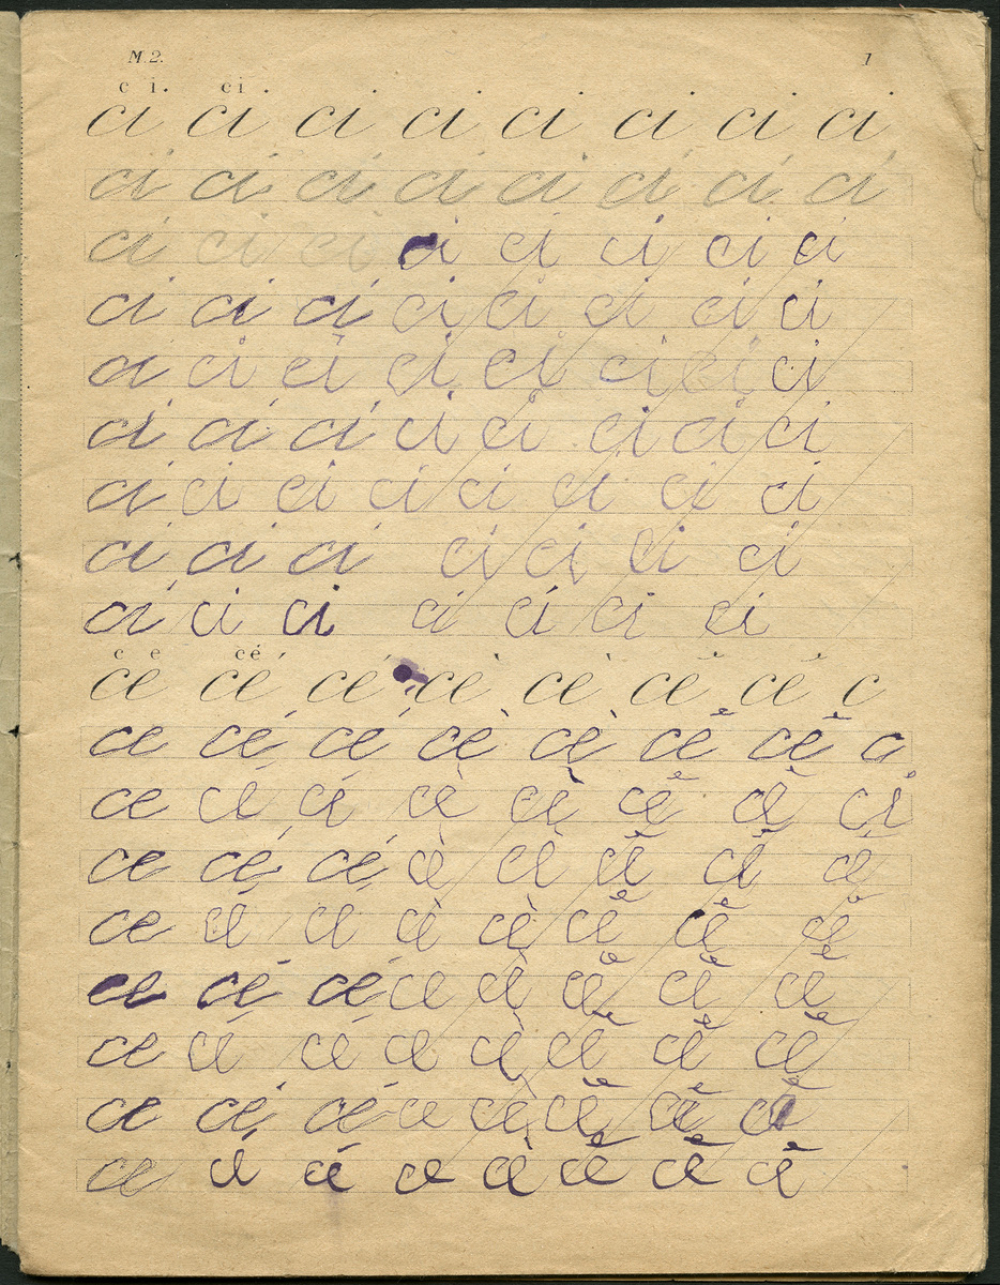 M.2. 1
c i. ci.
ci ci ci ci ci ci ci ci
ci ci ci ci ci ci ci ci
ci ci ci ci ci ci ci ci
ci ci ci ci ci ci ci ci
ci ci ci ci ci ci ci ci
ci ci ci ci ci ci ci ci
ci ci ci ci ci ci ci ci
ci ci ci ci ci ci ci
ci ci ci ci ci ci ci
c e cé
ce cé cé cè cè cě cě c
ce cé cé cè cè cě cě c
ce cé cé cè cè cě cě ci
ce cé cé cè cè cě cě cě
ce cé cé cè cè cě cě cě
ce cé cé ce cè cě cě cě
ce cé cé ce cè cě cě cě
ce cé cé ce cè cě cě cě
ce cé cé ce cè cě cě cě